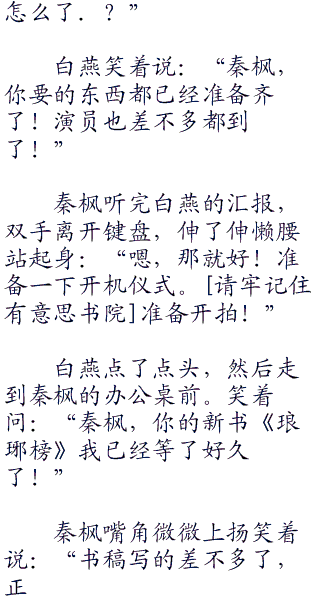 怎么了．？”
白燕笑着说：“秦枫，
你要的东西都已经准备齐
了！演员也差不多都到
了！”
秦枫听完白燕的汇报，
双手离开键盘，伸了伸懒腰
站起身：“嗯，那就好！准
备一下开机仪式。[请牢记住
有意思书院]准备开拍！”
白燕点了点头，然后走
到秦枫的办公桌前。笑着
问：“秦枫，你的新书《琅
琊榜》我已经等了好久
了！”
秦枫嘴角微微上扬笑着
说：“书稿写的差不多了，
正